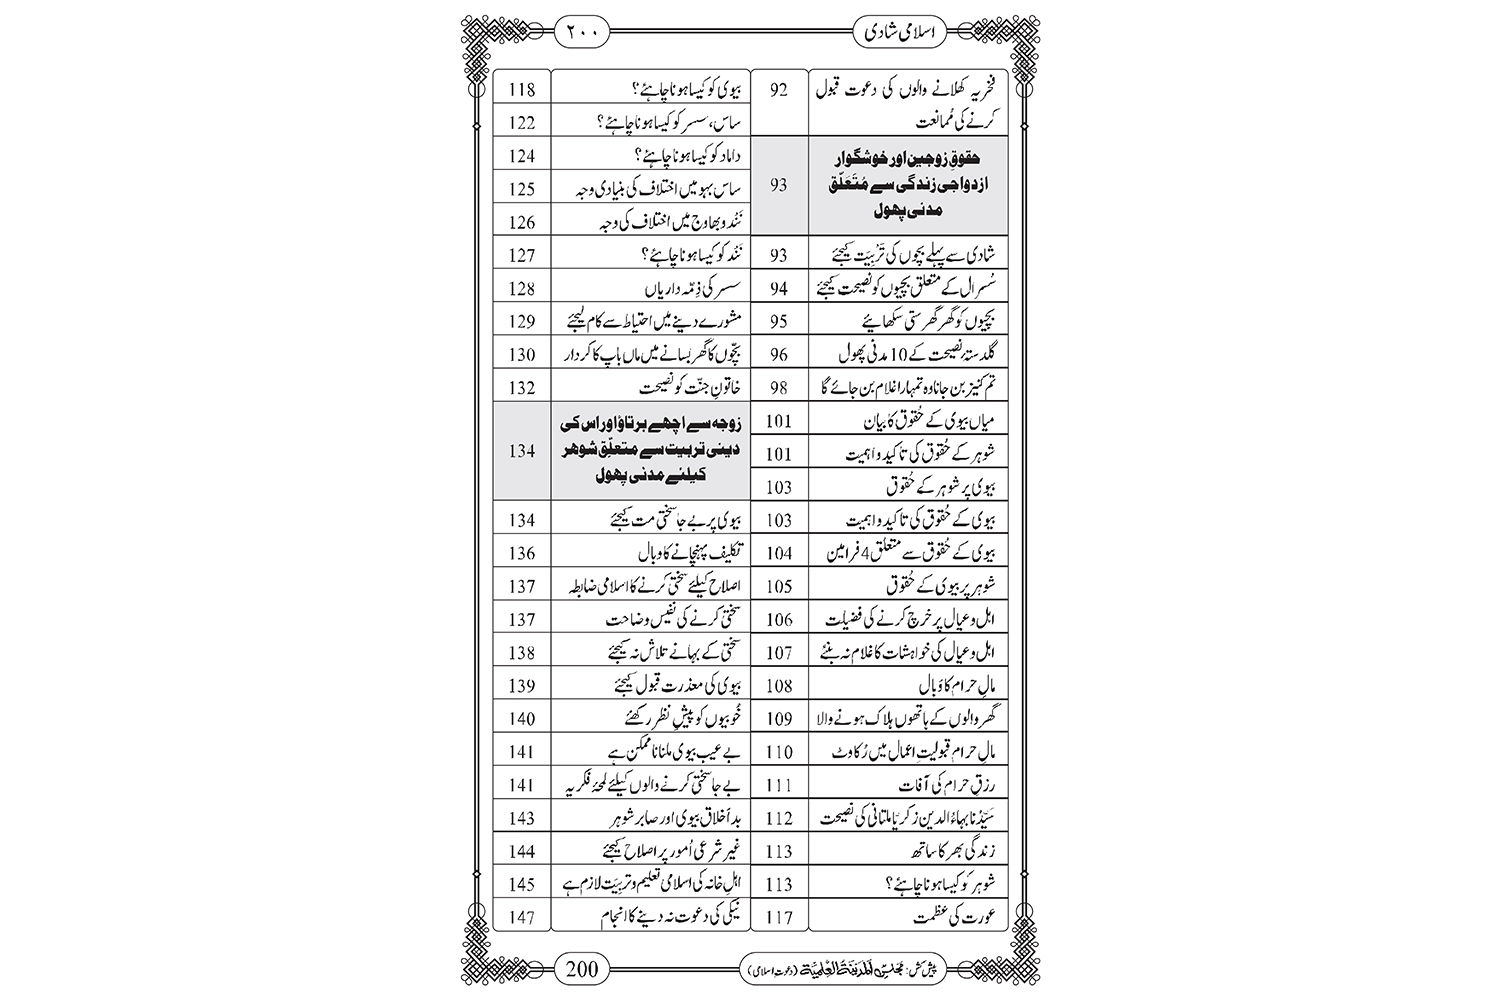 اسلامی شادی
۲۰۰
فخریہ کھلانے والوں کی دعوت قبول
کرنے کی مُمانعت
92
حقوقِ زوجین اور خوشگوار
ازدواجی زندگی سے مُتَعَلِّق
مدنی پھول
93
شادی سے پہلے بچوں کی تَرْبِیَت کیجئے 93
سُسرال کے متعلق بچیوں کو نصیحت کیجئے 94
بچیوں کو گھر گھرستی سکھایئے 95
گلدستۂ نصیحت کے 10 مدنی پھول 96
تم کنیز بن جانا وہ تمہارا غلام بن جائے گا 98
میاں بیوی کے حُقوق کا بیان 101
شوہر کے حُقوق کی تاکید و اہمیت 101
بیوی پر شوہر کے حُقوق 103
بیوی کے حُقوق کی تاکید و اہمیت 103
بیوی کے حُقوق سے متعلّق 4 فرامین 104
شوہر پر بیوی کے حُقوق 105
اہل و عیال پر خرچ کرنے کی فضیلت 106
اہل و عیال کی خواہشات کا غلام نہ بنئے 107
مالِ حرام کا وَبال 108
گھر والوں کے ہاتھوں ہلاک ہونے والا 109
مالِ حرام قبولیتِ اعمال میں رُکاوٹ 110
رزقِ حرام کی آفات 111
سَیِّدُنا بہاءُ الدین زکریّا ملتانی کی نصیحت 112
زندگی بھر کا ساتھ 113
شوہر کو کیسا ہونا چاہئے؟ 113
عورت کی عظمت 117
بیوی کو کیسا ہونا چاہئے؟ 118
ساس، سسر کو کیسا ہونا چاہئے؟ 122
داماد کو کیسا ہونا چاہئے؟ 124
ساس بہو میں اختلاف کی بنیادی وجہ 125
نَنْد و بھاوج میں اختلاف کی وجہ 126
نَنْد کو کیسا ہونا چاہئے؟ 127
سسر کی ذِمّہ داریاں 128
مشورے دینے میں احتیاط سے کام لیجئے 129
بچّوں کا گھر بَسانے میں ماں باپ کا کردار 130
خاتونِ جنّت کو نصیحت 132
زوجہ سے اچھے برتاؤ اور اس کی
دینی تربیت سے متعلّق شوہر
کیلئے مدنی پھول
134
بیوی پر بے جا سختی مت کیجئے 134
تکلیف پہنچانے کا وبال 136
اصلاح کیلئے سختی کرنے کا اسلامی ضابطہ 137
سختی کرنے کی نفیس وضاحت 137
سختی کے بہانے تلاش نہ کیجئے 138
بیوی کی معذرت قبول کیجئے 139
خُوبیوں کو پیشِ نظر رکھئے 140
بے عیب بیوی ملنا ناممکن ہے 141
بے جا سختی کرنے والوں کیلئے لمحۂ فکریہ 141
بد اَخلاق بیوی اور صابر شوہر 143
غیر شرعی اُمور پر اصلاح کیجئے 144
اہلِ خانہ کی اسلامی تعلیم و تربِیَت لازم ہے 145
نیکی کی دعوت نہ دینے کا انجام 147
پیش کش: مجلس اَلْمَدِیْنَۃُ الْعِلْمِیَّۃ (دعوتِ اسلامی)
200